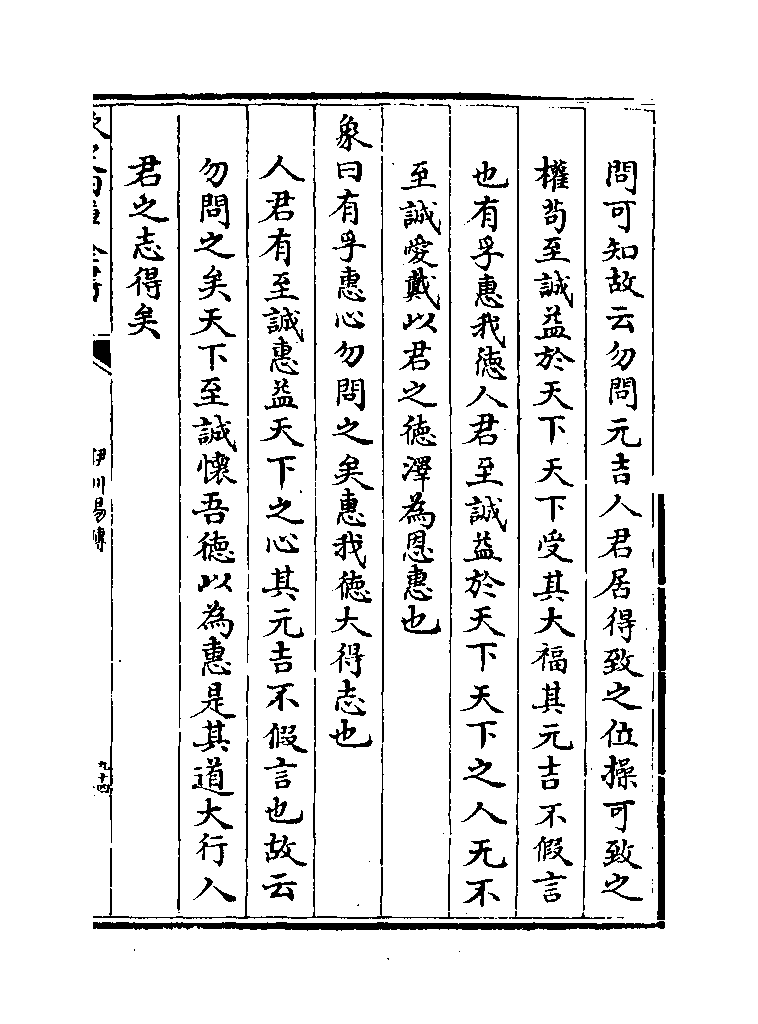 問可知故云勿問元吉人君居得致之位操可致之
權茍至誠益於天下天下受其大福其元吉不假言
也有孚惠我徳人君至誠益於天下天下之人无不
至誠愛戴以君之徳澤為恩惠也
象曰有孚惠心勿問之矣惠我徳大得志也
人君有至誠惠益天下之心其元吉不假言也故云
勿問之矣天下至誠懷吾徳以為惠是其道大行人
君之志得矣
伊川易傳
九十四